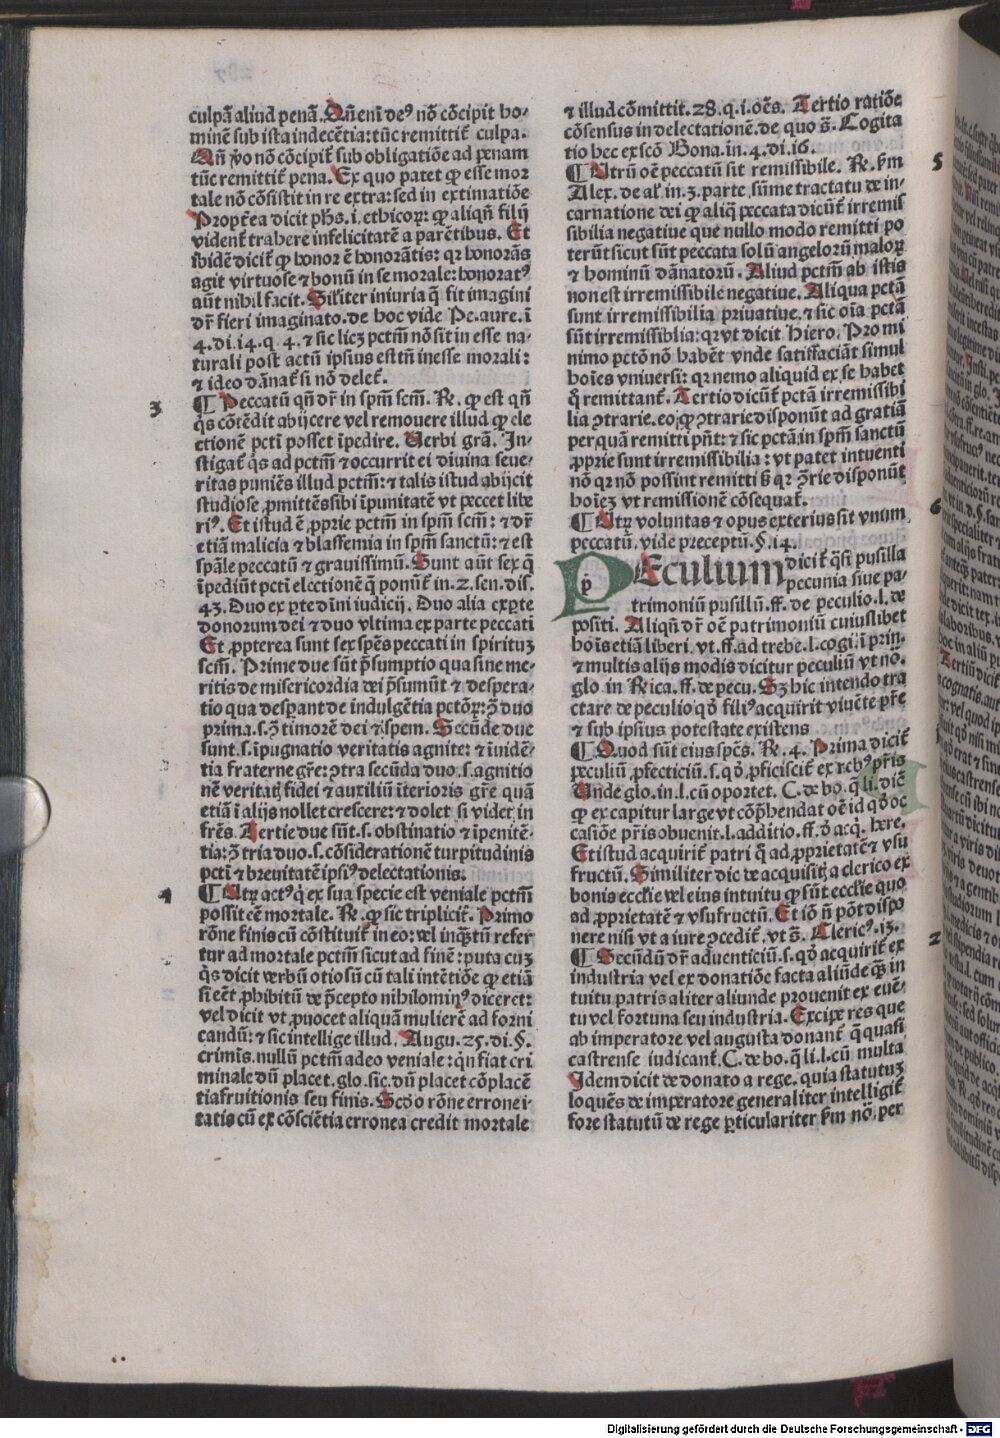 culpā aliud penā. Qn̄ eni de⁹ nō cōcipit ho-
minē sub ista indecētia: tūc remittit̄ culpa.
Qn̄ v̄o nō cōcipit̄ sub obligatiōe ad penam
tūc remittit̄ pena. Ex quo patet ꝙ esse mor
tale nō cōsistit in re extra: sed in extimatiōe
Propt̄ea dicit ph̄s. i. ethicoꝝ: ꝙ aliqn̄ filij
vident̄ trahere infelicitatē a parētibus. Et
ibidē dicit̄ ꝙ honor ē honorātis: qꝛ honorās
agit virtuose ⁊ bonū in se morale: honorat⁹
aūt nihil facit. Sil̄iter iniuria q̄ fit imagini
dr̄ fieri imaginato. de hoc vide Pe. aure. ī
4. di. 14. q. 4. ⁊ sic licꝫ pctm̄ nō sit in esse na-
turali post actū ipsius est tn̄ inesse morali:
⁊ ideo dānat̄ si nō delet̄.
3
¶ Peccatū qn̄ dr̄ in spm̄ scm̄. ꝶ. ꝙ est qn̄
q̇s cōtēdit abijcere vel remouere illud ꝙ ele
ctionē pcti posset īpedire. Verbi grā. In-
stigat̄ q̇s ad pctm̄ ⁊ occurrit ei diuina seue-
ritas puniēs illud pctm̄: ⁊ talis istud abijcit
studiose ꝓmittēs sibi īpunitatē vt peccet libe
ri⁹. Et istud ē ꝓprie pctm̄ in spm̄ scm̄: ⁊ dr̄
etiā malicia ⁊ blassemia in spm̄ sanctū: ⁊ est
spāle peccatū ⁊ grauissimū. Sunt aūt sex q̄
īpediūt pcti electionē q̄ ponūt̄ in. 2. sen. dis.
43. Duo ex ꝑte diuini iudicij. Duo alia ex ꝑte
donorum dei ⁊ duo vltima ex parte peccati
Et ꝓpterea sunt sex spēs peccati in spirituꝫ
scm̄. Prime due sūt p̄sumptio qua sine me-
ritis de misericordia dei p̄sumūt ⁊ despera-
tio qua desꝑant de indulgētia pctōꝝ: ꝯ̄ duo
prima. s. ꝯ̄ timorē dei ⁊ spem. Secūde due
sunt. s. īpugnatio veritatis agnite: ⁊ inuidē-
tia fraterne gr̄e: ꝯtra secūda duo. s. agnitio
nē veritatꝭ fidei ⁊ auxiliū īterioris gr̄e quā
etiā ī alijs nollet crescere: ⁊ dolet si videt in
fr̄es. Tertie due sūt. s. obstinatio ⁊ īpenitē-
tia: ꝯ̄ tria duo. s. cōsiderationē turpitudinis
pcti ⁊ breuitatē ipsi⁹ delectationis.
4
¶ Utꝝ act⁹ q̇ ex sua specie est veniale pctm̄
possit eē mortale. ꝶ. ꝙ sic triplicit̄. Primo
rōne finis cū cōstituit̄ in eo: vel inqᷓtū refer
tur ad mortale pctm̄ sicut ad finē: puta cuꝫ
q̇s dicit verbū otiosū cū tali intētiōe ꝙ etiā
si eēt ꝓhibitū de p̄cepto nihilomin⁹ diceret:
vel dicit vt ꝓuocet aliquā mulierē ad forni
candū: ⁊ sic intellige illud. Augu. 25. di. §.
crimīs. nullū pctm̄ adeo veniale: qn̄ fiat cri
minale dū placet. glo. sic. dū placet cōplacē
tia fruitionis seu finis. Scd̄o rōne errone i-
tatis cū ex cōsciētia erronea credit mortale
⁊ illud cōmittit. 28. q. 1. oēs. Tertio ratiōe
cōsensus in delectationē. de quo s̄. Cogita
tio hec ex scō Bona. in. 4. di. 16.
5
¶ Utrū oē peccatū sit remissibile. ꝶ. fm̄
Alex. de al̓. in. 3. parte. sūme tractatu de in-
carnatione dei ꝙ aliq̄ peccata dicūt̄ irremis
sibilia negatiue que nullo modo remitti po
terūt sicut sūt peccata solū angelorū maloꝝ
⁊ hominū dānatorū. Aliud pctm̄ ab istis
non est irremissibile negatiue. Aliqua pctā
sunt irremissibilia priuatiue. ⁊ sic oīa pctā
sūt irremissiblia: qꝛ vt dicit Hiero. Pro mi
nimo pctō nō habēt vnde satisfaciāt simul
hoīes vniuersi: qꝛ nemo aliquid ex se habet
q̇ remittant̄. Tertio dicūt̄ pctā irremissibi
lia ꝯtrarie. eo ꝙ ꝯtrarie disponūt ad gratiā
per quā remitti pn̄t: ⁊ sic pctā in spm̄ sanctū
ꝓprie sunt irremissibilia: vt patet intuenti
nō qꝛ nō possint remitti sꝫ qꝛ ꝯ̄rie disponūt
hoīeꝫ vt remissionē cōsequat̄.
6
¶ Utꝝ voluntas ⁊ opus exterius sit vnum
peccatū. vide preceptū. §. 14.
PEculium dicit̄ q̄si pusilla
pecunia siue pa-
trimoniū pusillū. ff. de peculio. l. de
positi. Aliqn̄ dr̄ oē patrimoniū cuiuslibet
hoīs etiā liberi. vt. ff. ad trebe. l. cogi. ī prin.
⁊ multis alijs modis dicitur peculiū vt no.
glo. in Rica. ff. de pecu. Sꝫ hic intendo tra
ctare de peculio qd̄ fili⁹ acquirit viuēte pr̄e
⁊ sub ipsius potestate existens
¶ Quod sūt eius spēs. ꝶ. 4. Prima dicit̄
peculiū. ꝓfecticiū. s. qd̄ ꝓficiscit̄ ex reb⁹ pr̄is
Unde glo. in. l. cū oportet. C. de bo. q̄ li. diē
ꝙ ex capitur large vt cōp̄hendat oē id qd̄ oc
casiōe pr̄is obuenit. l. additio. ff. d̄ acq. here.
Et istud acquirit̄ patri q̇ ad ꝓprietatē ⁊ vsu
fructū. Similiter dic de acquisitꝭ a clerico ex
bonis eccl̄ie vel eius intuitu ꝙ sūt eccl̄ie quo
ad ꝓprietatē ⁊ vsufructū. Et iō n̄ pōt dispo
nere nisi vt a iure ꝯcedit̄. vt s̄. Cleric⁹. 13.
2
¶ Secūdū dr̄ aduenticiū. s. qd̄ acquirit̄ ex
industria vel ex donatiōe facta aliūde qᷓ in
tuitu patris aliter aliunde prouenit ex euē-
tu vel fortuna seu industria. Excipe res que
ab imperatore vel augusta donant̄ q̄ quasi
castrense iudicant̄. C. de bo. q̄ li. l. cū multa
Idem dicit de donato a rege. quia statutuꝫ
loquēs de imperatore generaliter intelligit̄
fore statutū de rege ꝑticulariter fm̄ no. per
Digitalisierung gefördert durch die Deutsche Forschungsgemeinschaft - DFG